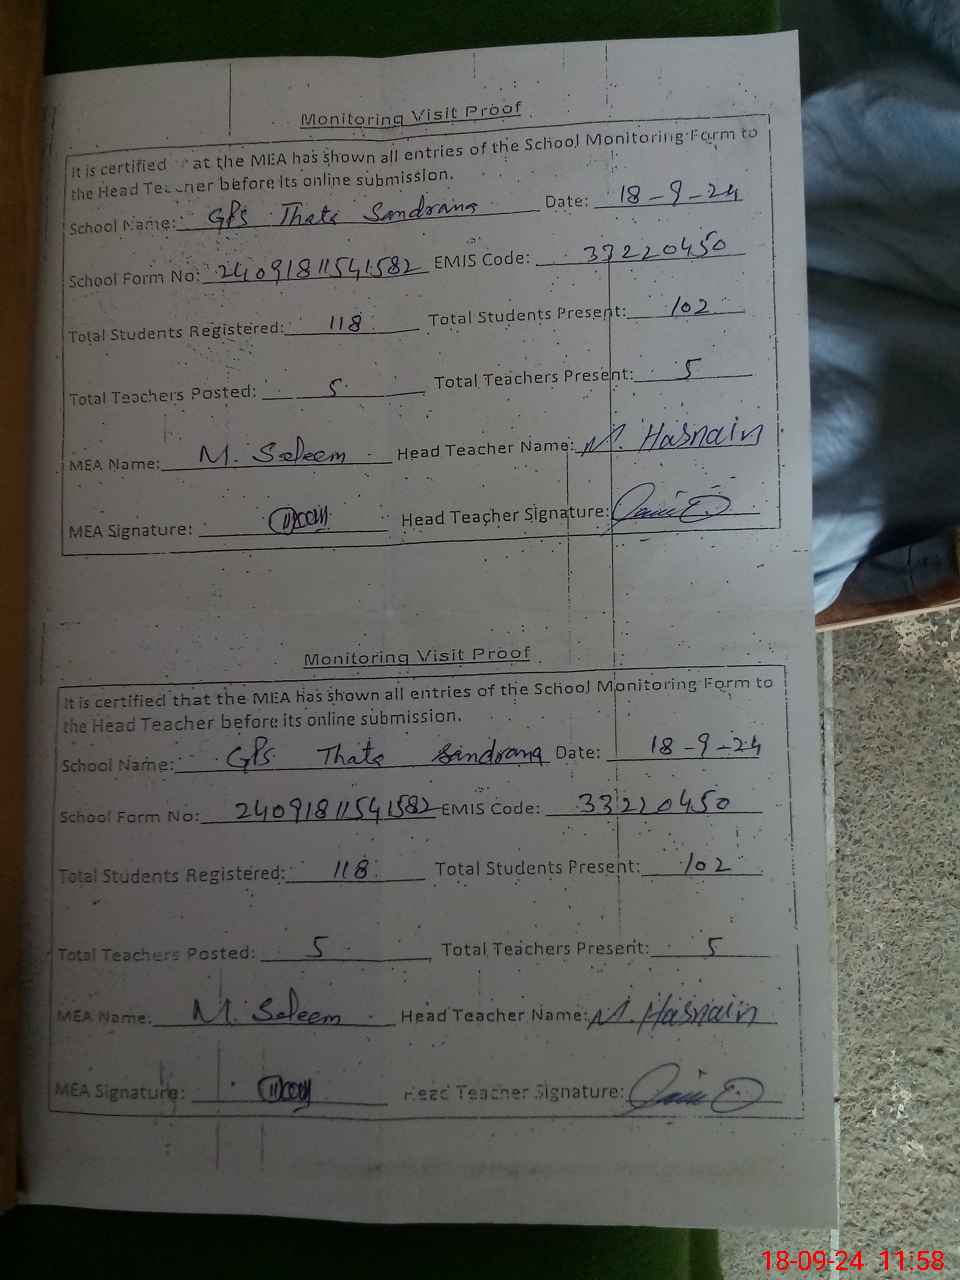 Monitoring Visit Proof
It is certified at the MEA has shown all entries of the School Monitoring Form to
the Head Teacher before its online submission.
School Name: GPS Thata Sandrana Date: 18-9-24
School Form No: 24091811541582 EMIS Code: 33220450
Total Students Registered: 118 Total Students Present: 102
Total Teachers Posted: 5 Total Teachers Present: 5
MEA Name: M. Saleem Head Teacher Name: M. Hasnain
MEA Signature: Head Teacher Signature:
Monitoring Visit Proof
It is certified that the MEA has shown all entries of the School Monitoring Form to
the Head Teacher before its online submission.
School Name: GPS Thata Sandrana Date: 18-9-24
School Form No: 24091811541582 EMIS Code: 33220450
Total Students Registered: 118 Total Students Present: 102
Total Teachers Posted: 5 Total Teachers Present: 5
MEA Name: M. Saleem Head Teacher Name: M. Hasnain
MEA Signature: Head Teacher Signature:
18-09-24 11:58